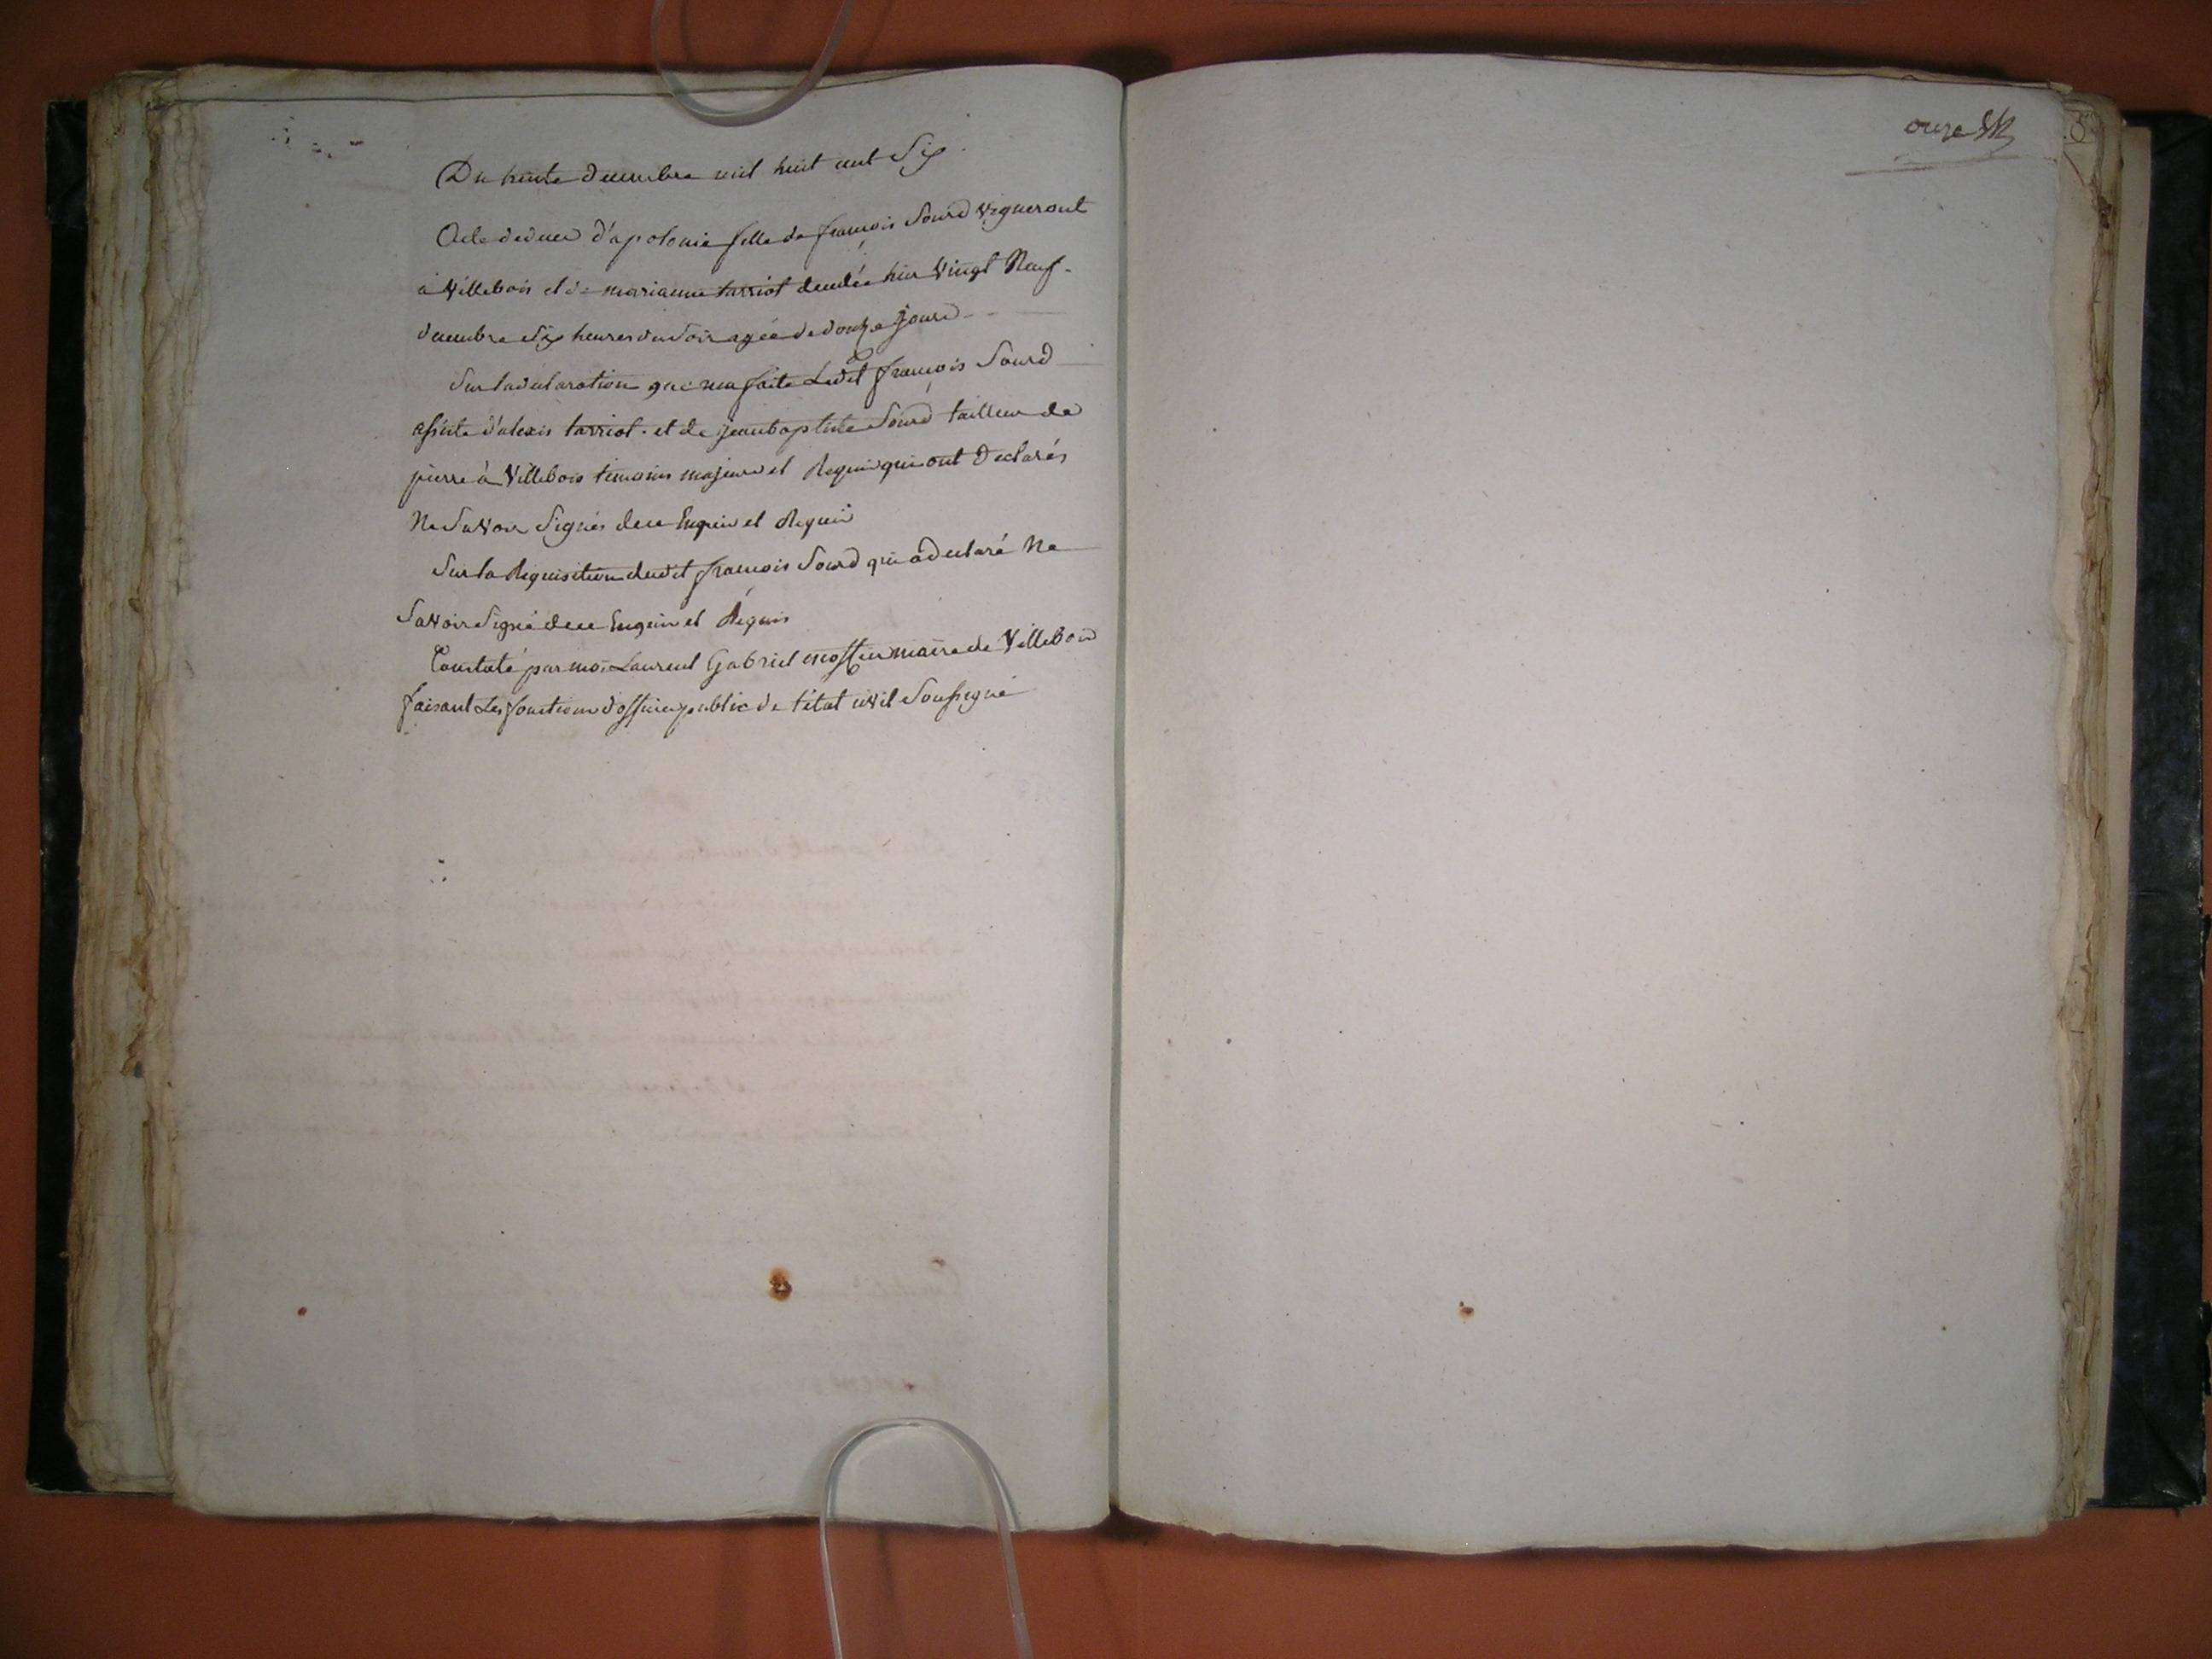 Du trente decembre mil huit cent Six
Acte de deces d'apolonie fille de françois Sourd vigneront
a Villebois et de marianne tarriot decedée hier Vingt Neuf
decembre Six heures du Soir agée de douze Jours
Sur la declaration que ma faite Ledit françois Sourd
assisté d'alexis tarriot et de jeanbaptiste Sourd tailleur de
pierre à Villebois temoins majeurs et Requis qui ont declarés
Ne Savoir Signés de ce Enquis et Requis
Sur la Requisition dudit françois Sourd qui a declaré Ne
Savoir Signé de ce Enquis et Requis
Constaté par moi Laurent Gabriel maire de Villebois
faisant Les fonctions d'officier public de l'état civil Soussigné
onze